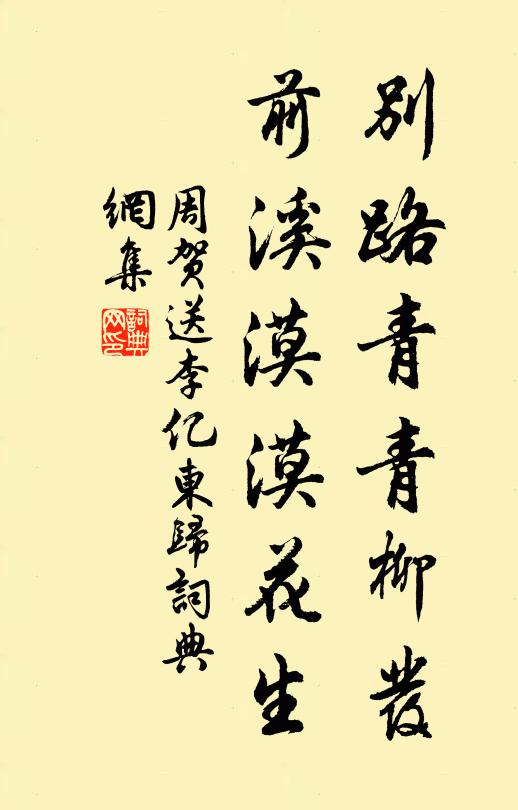 別路青青柳發
前溪漠漠花生
周賀送李亿東歸詞典
網集
詞典
网印